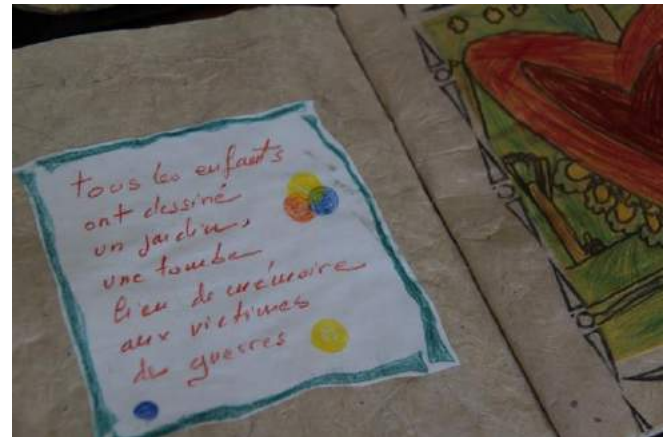 tous les enfants
ont dessiné
un jardin,
une tombe
lieu de mémoire
aux victimes
de guerres